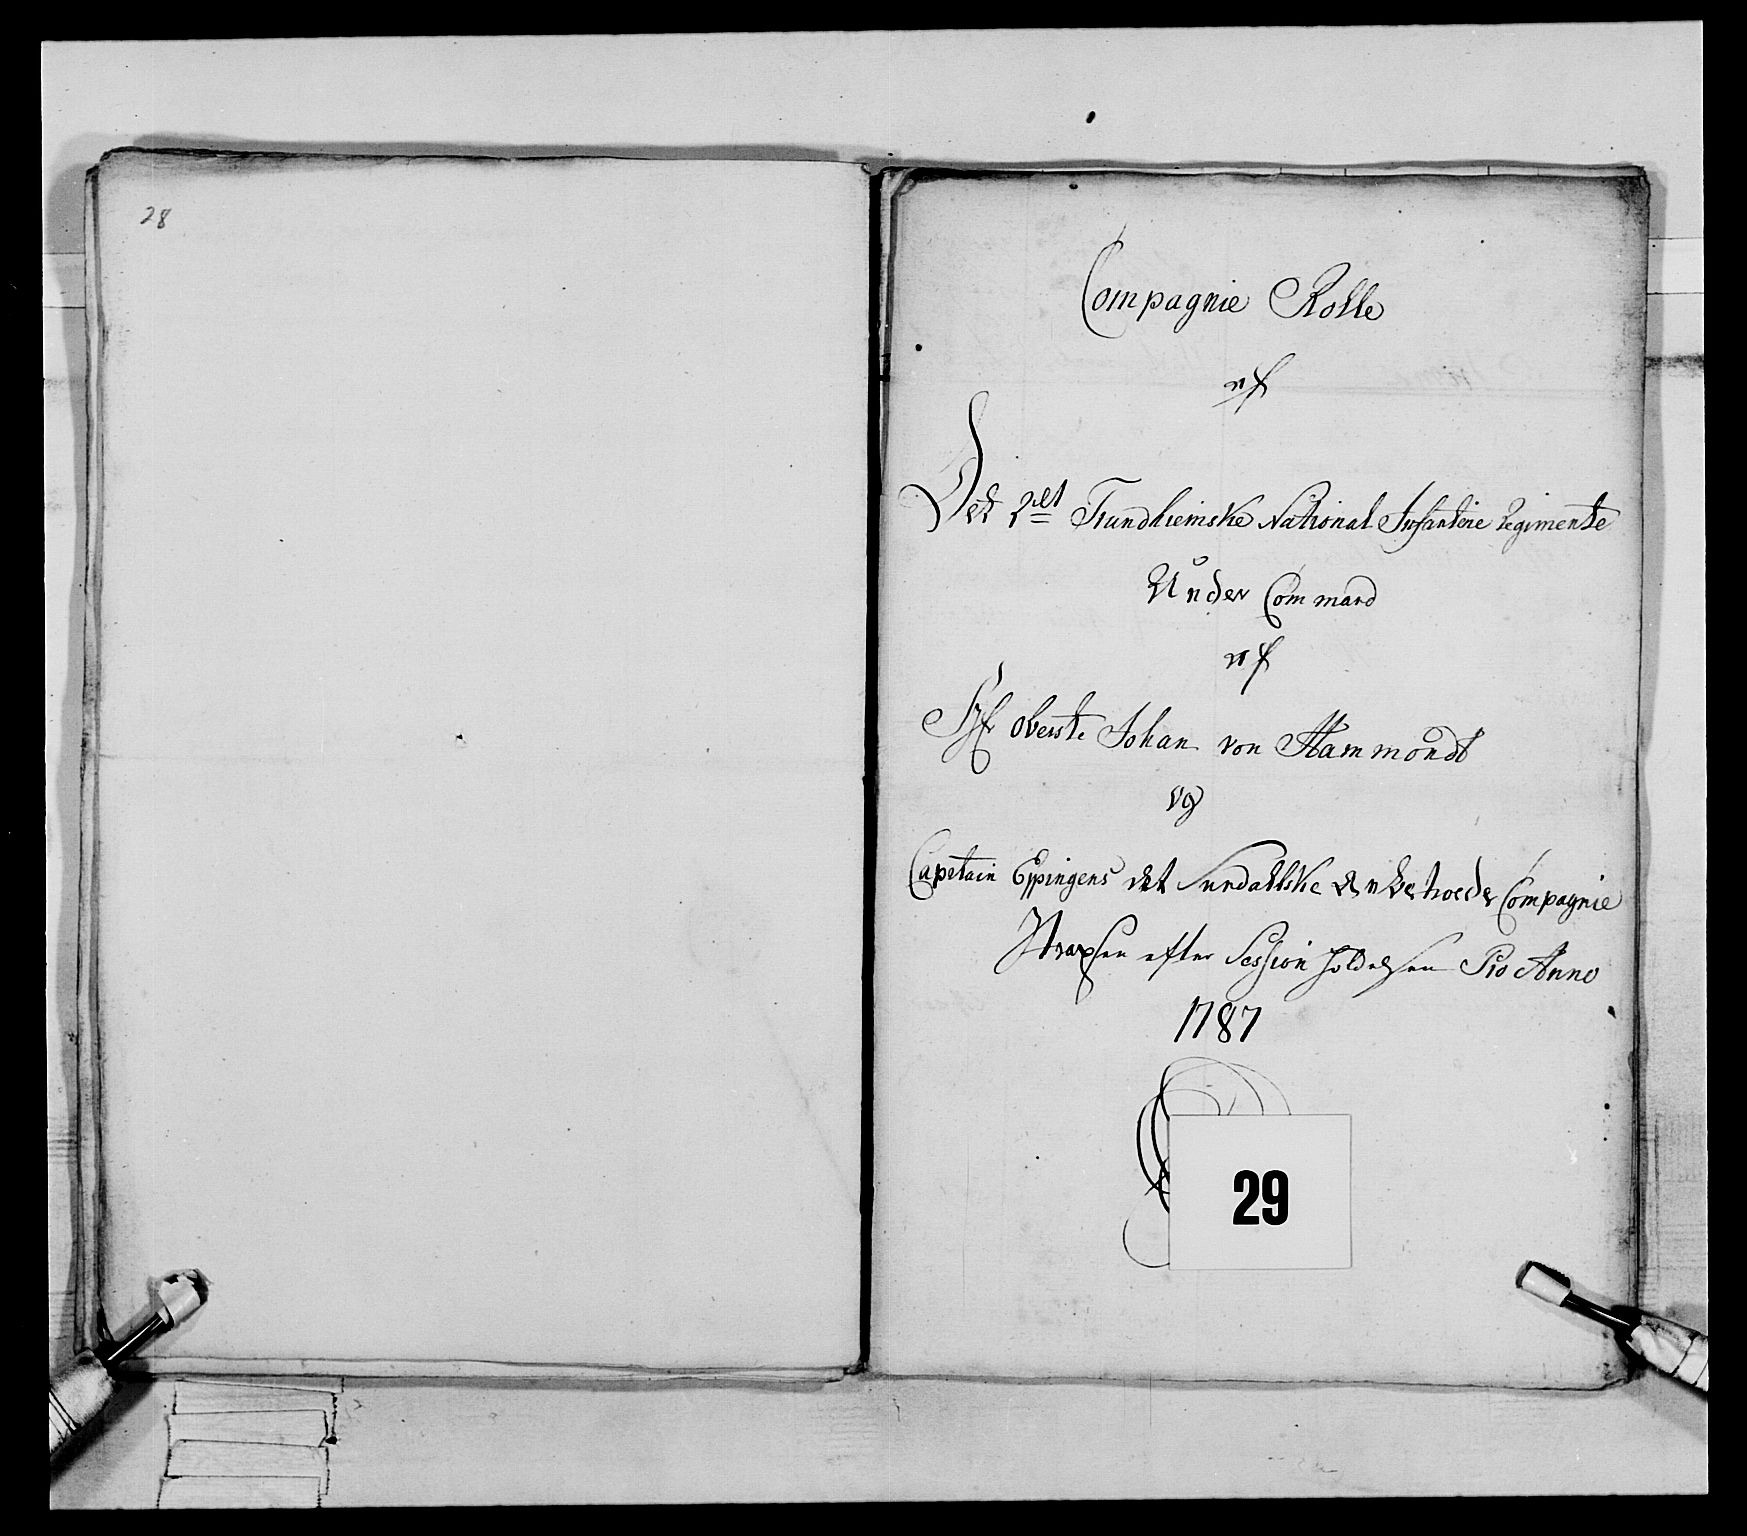 28
Compagnie Rolle
af
Det 2det Trundhiemske National Infanterie Regimente
Under Command
af
Hr Oberste Johan von Hammondt
og
Capetain Eppingens det Surdahlske Compagnie
Strapsen efter Session holdelsen Pro Anno
1787
29